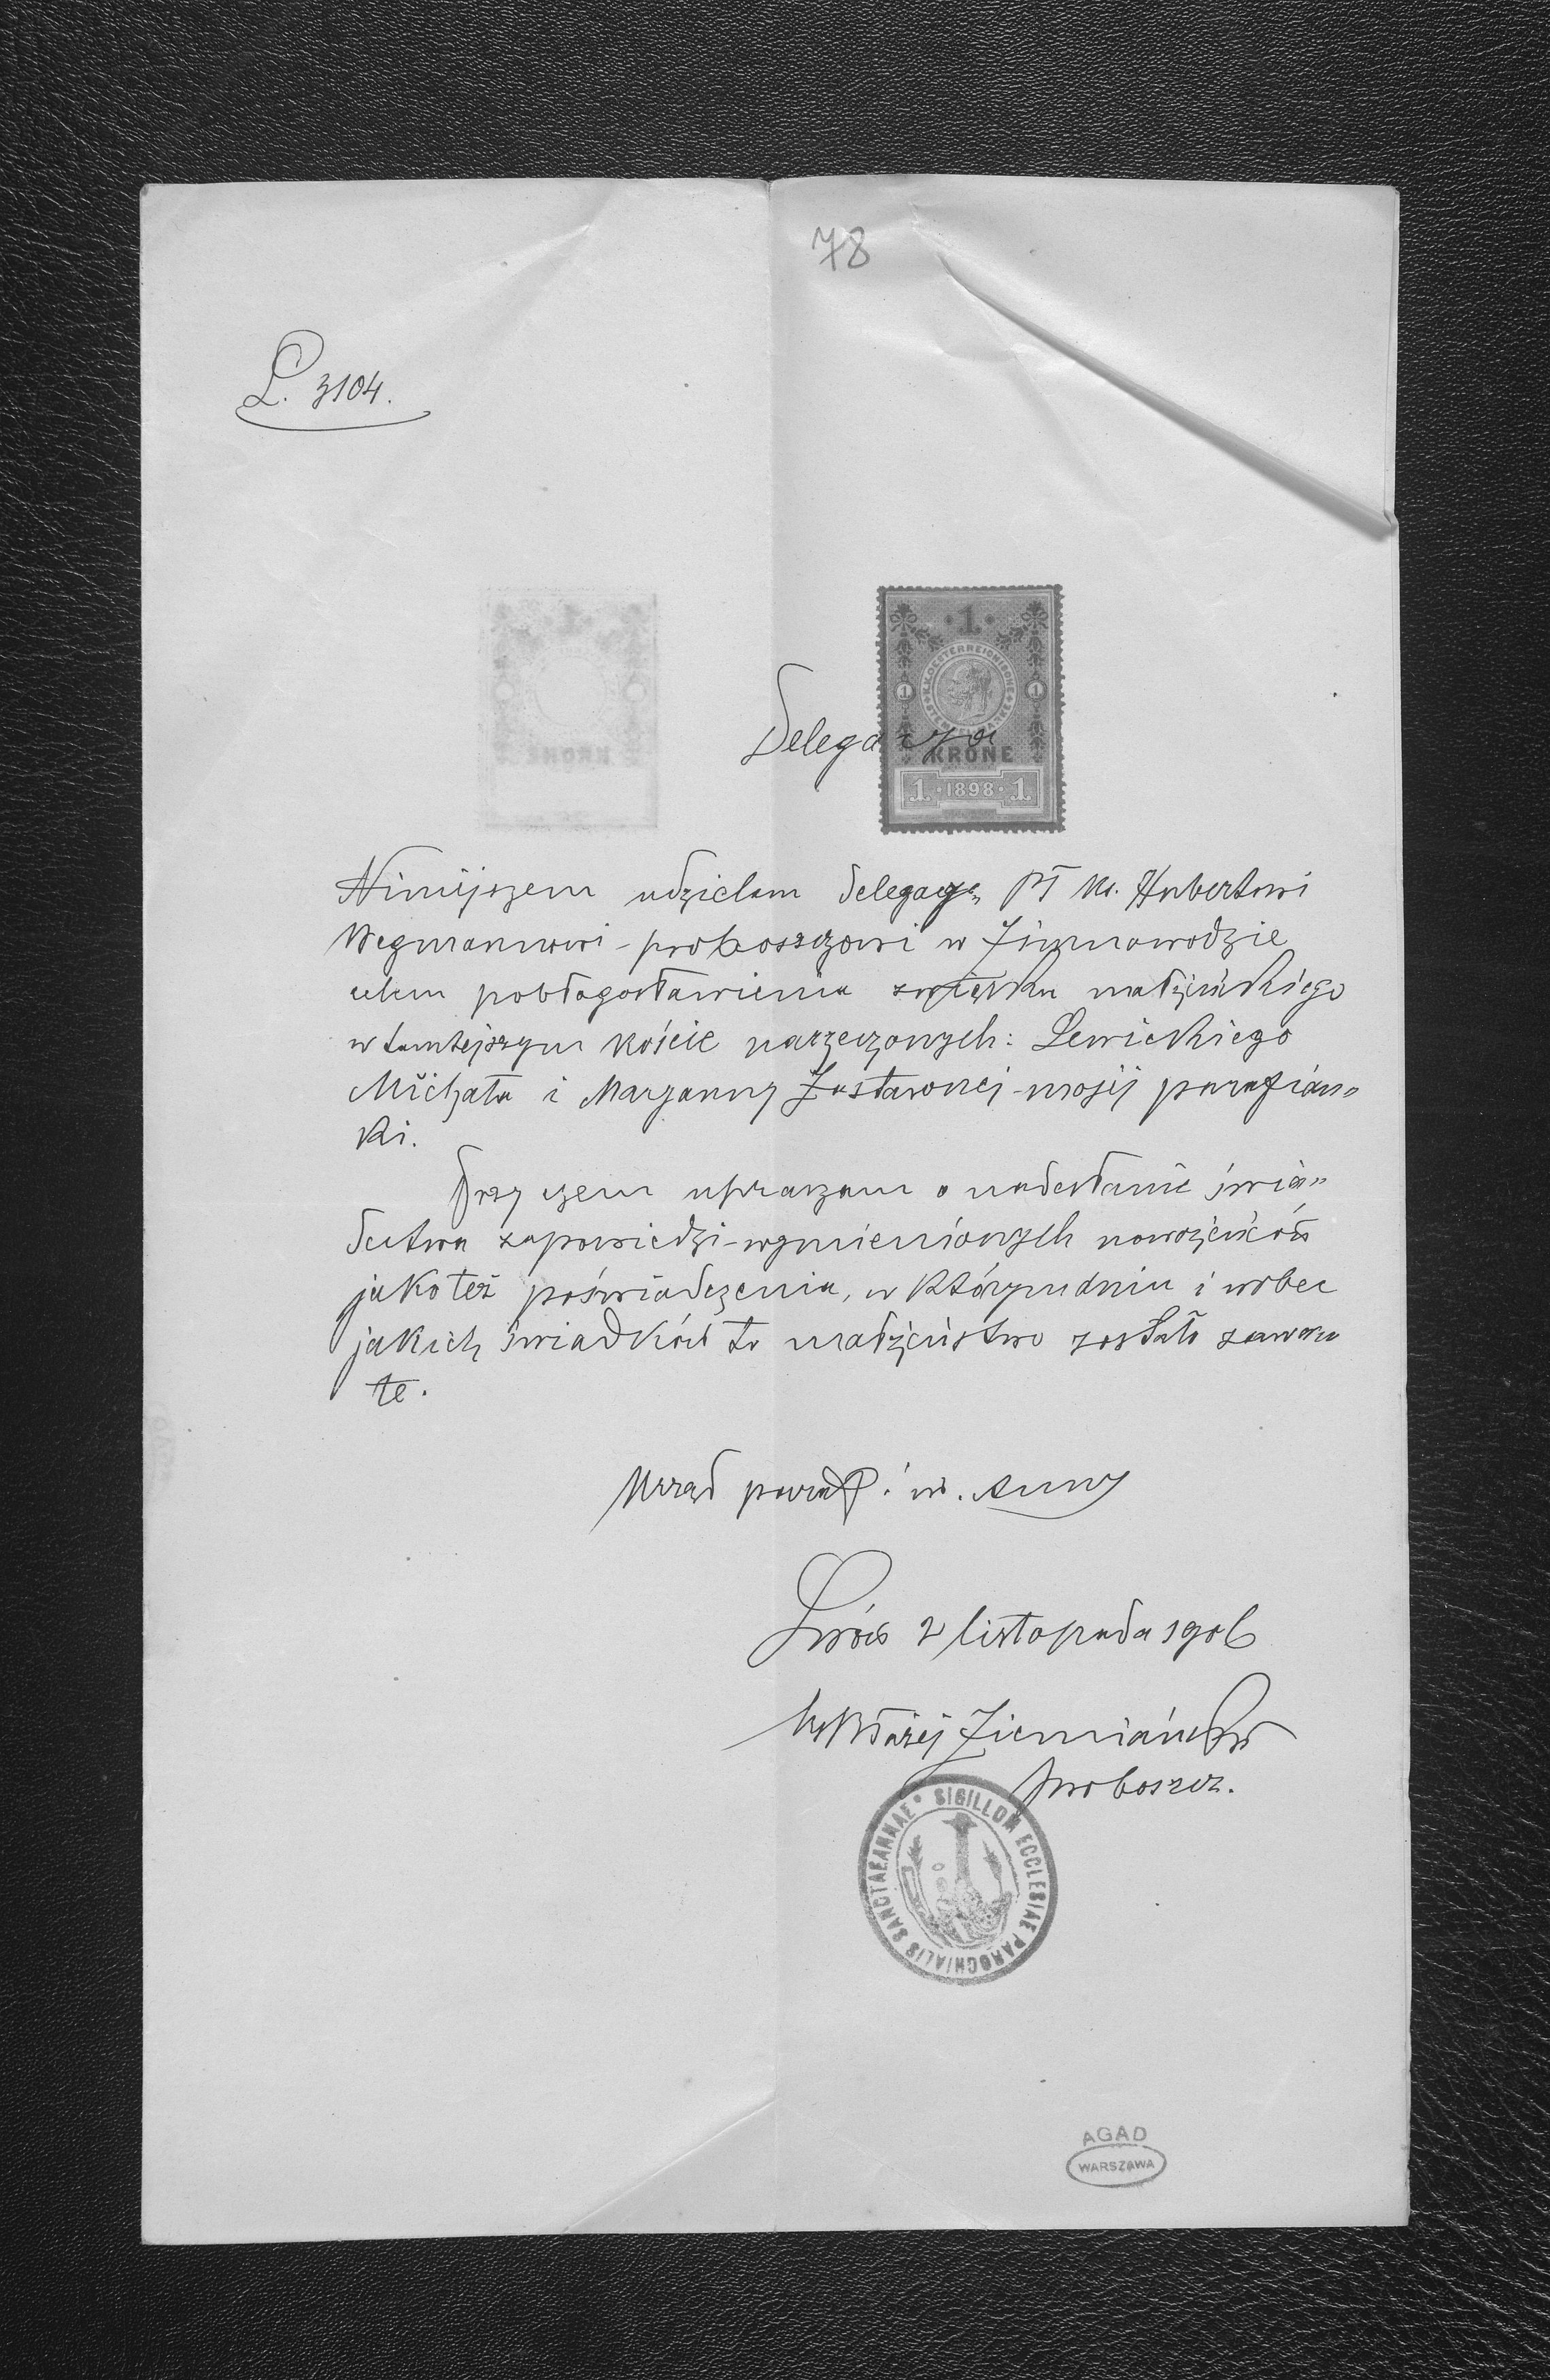 78
L. 3104.
1.
K.K. OESTERREICHISCHE STEMPELMARKE
1 1
Delegacya
KRONE
1. 1898 1.
Niniejszem udzielam delegacyę PT ks. Hubertowi
Wegmannowi - proboszczowi w Zimnowodzie
celem pobłogosławienia związku małżeńskiego
w tamtejszym kościele narzeczonych: Lewickiego
Michała i Maryanny Zastawnej - mojej parafian„
ki.
Przy czem upraszam o nadesłanie świa„
dectwa zapowiedzi - wymienionych nowożeńców
jakoteż poświadczenia, w którym dniu i wobec
jakich świadków to małżeństwo zostało zawar
te.
Urząd paraf. św. Anny
Lwów 2 listopada 1906
ks Błażej Ziemiański
proboszcz.
SIGILLUM ECCLESIAE PAROCHIALIS SANCTAE ANNAE
AGAD
WARSZAWA